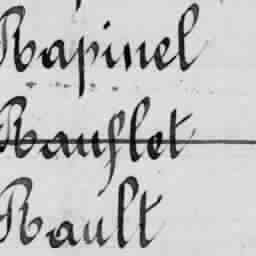 Rapinel
Rauflet
Rault